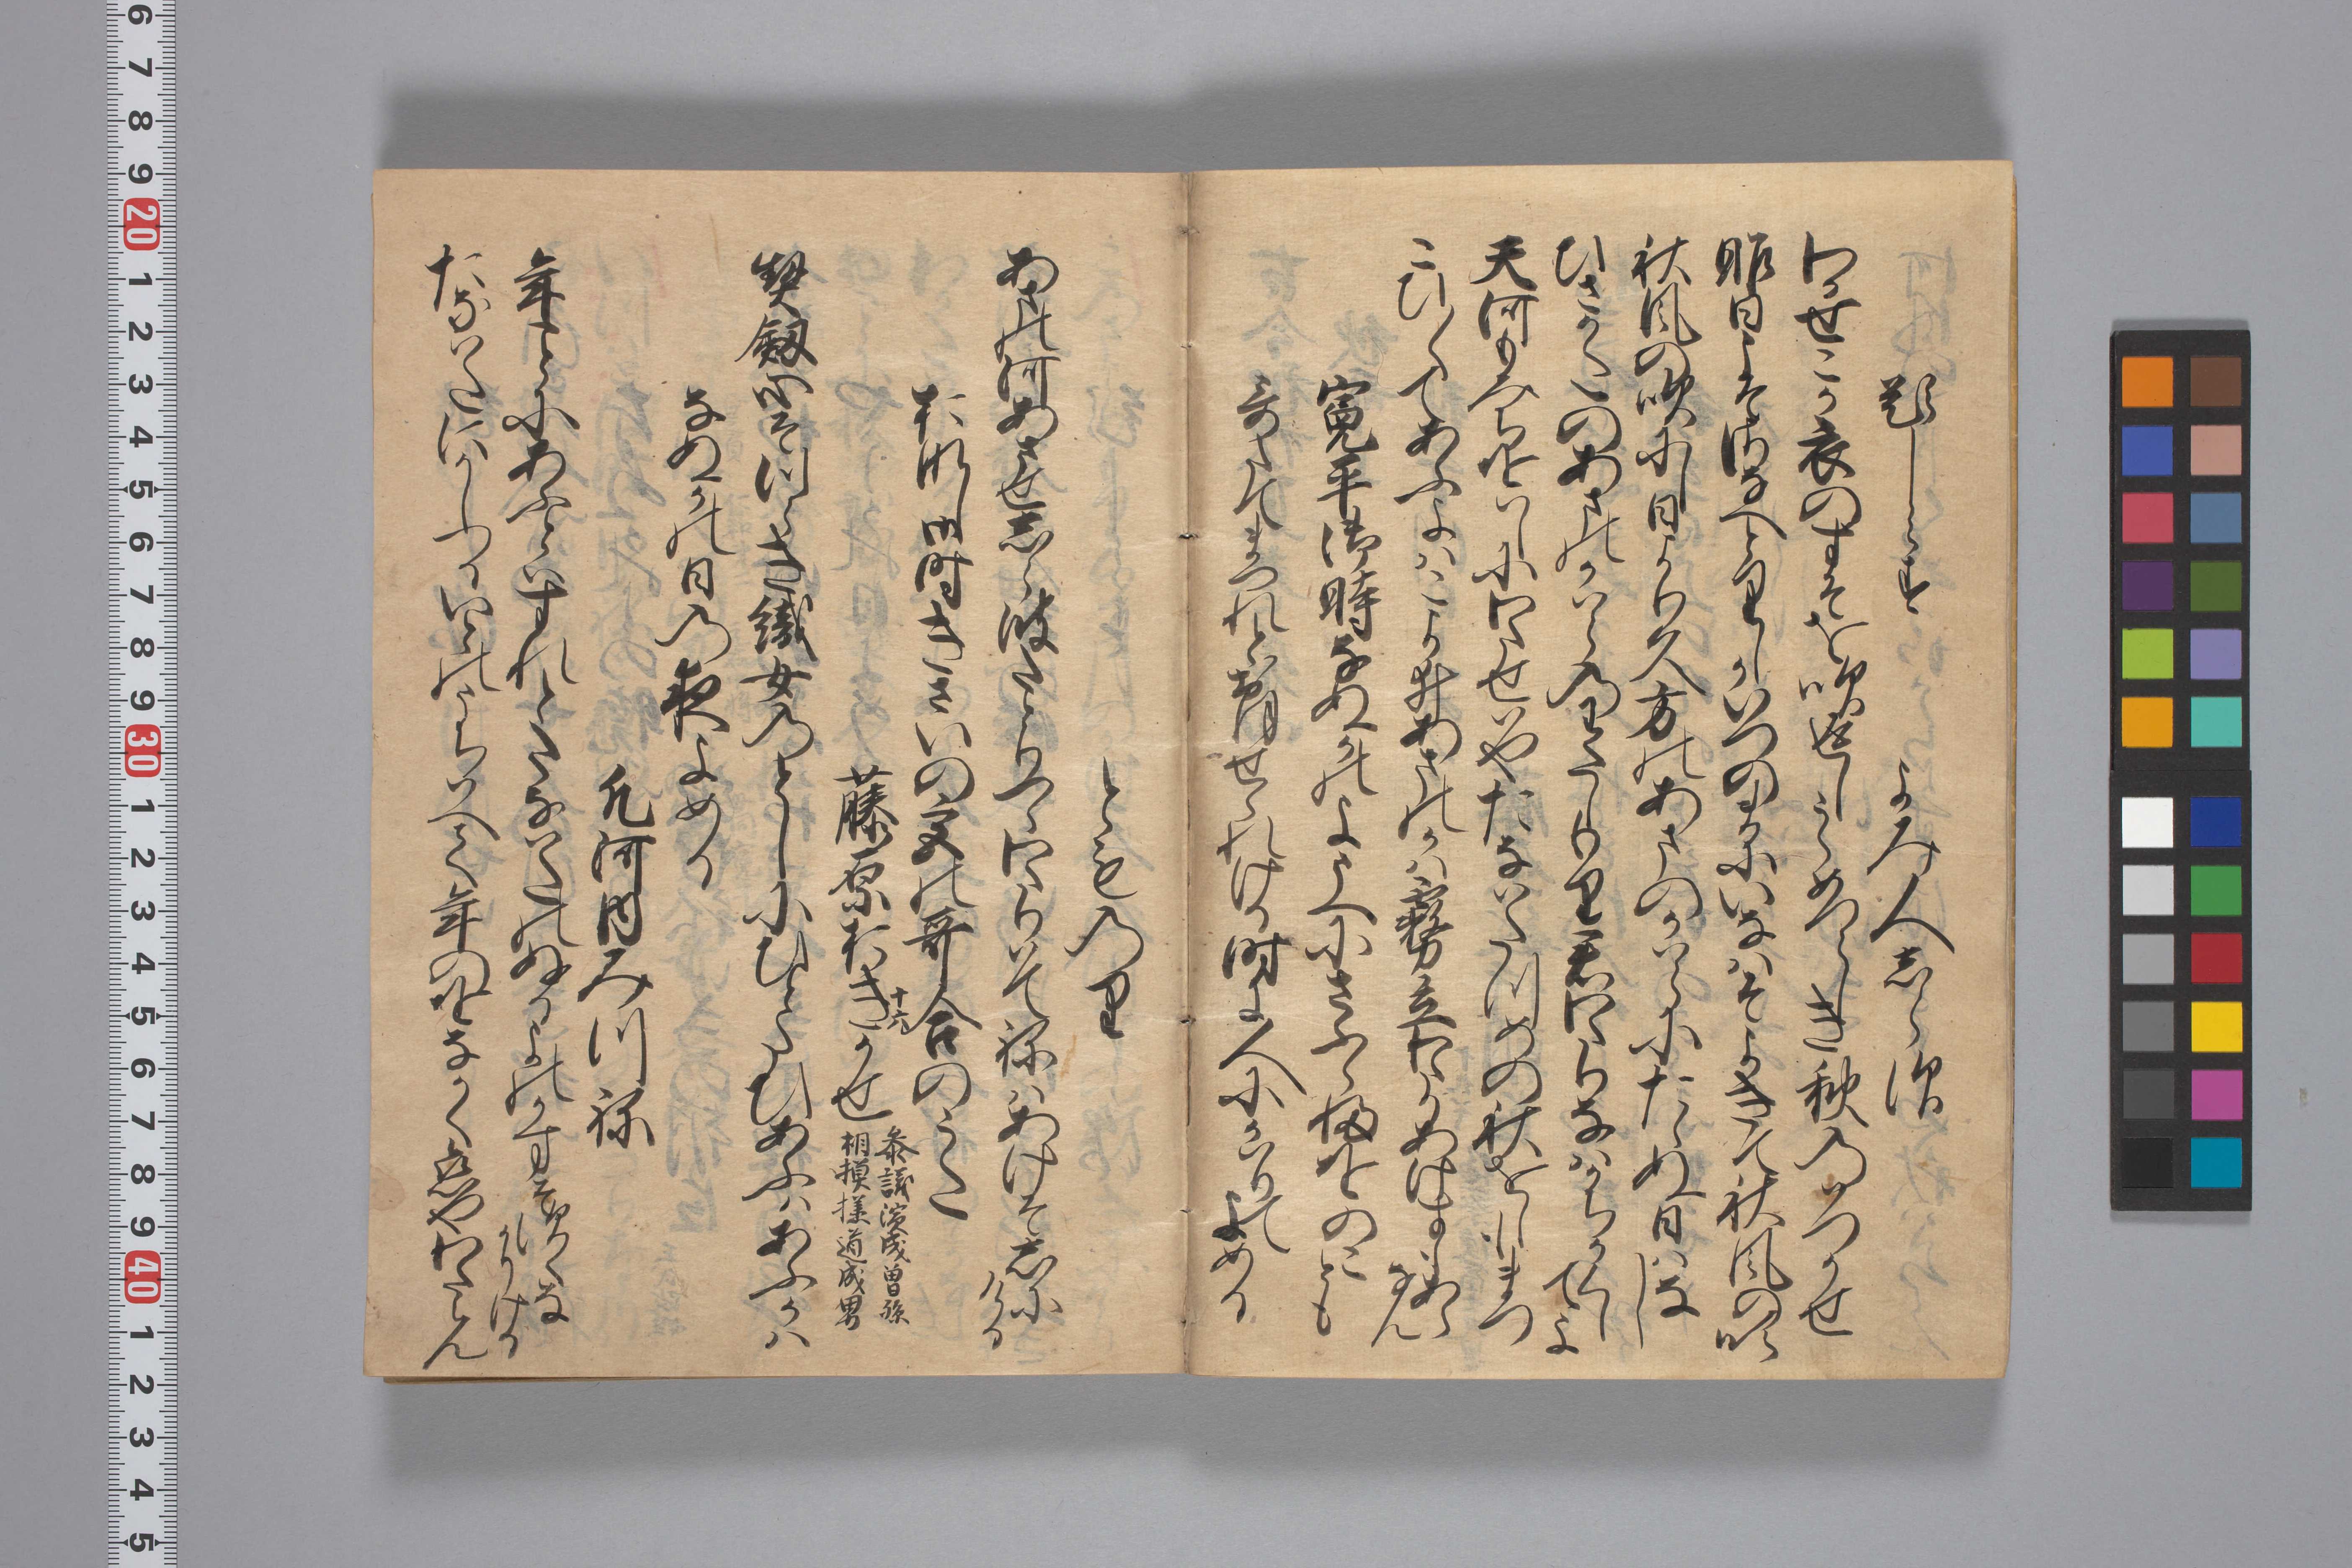 題しらす　よみ人しらす
わかせこか衣のすそを吹返しうらめつらしき秋のはつかせ
昨日こそさなへとりしかいつのまにいなはそよきて秋風の吹
秋風の吹にし日より久方のあまのかはらにたゝぬ日はなし
ひさかたのあまのかはらのわたしもり君わたりなはかちかくしてよ
天河もみちをはしにわたせはやたなはたつめの秋をしもまつ
こひ〳〵てあふよはこよひあまの河霧立わたりあけすもあらなん
寛平御時なぬかのようへにさふらふをのことも
哥たてまつれと仰せられける時に人にかはりてよめる
とものり
あまの河あさせしら波たとりつゝわたりはてねはあけそしにける
おなし御時きさいの宮の哥合のうた
藤原おきかせ
十六
参議濱成曽孫
相摸掾道成男
契釼心そつらき織女のとしにひとたひあふはあふかは
なぬかの日の夜よめる
凡河内みつね
年ことにあふとはすれとたなはたのぬるよのかすそすくなかりける
たなはたにかしつるいとのうちはへて年のをなかく恋やわたらん